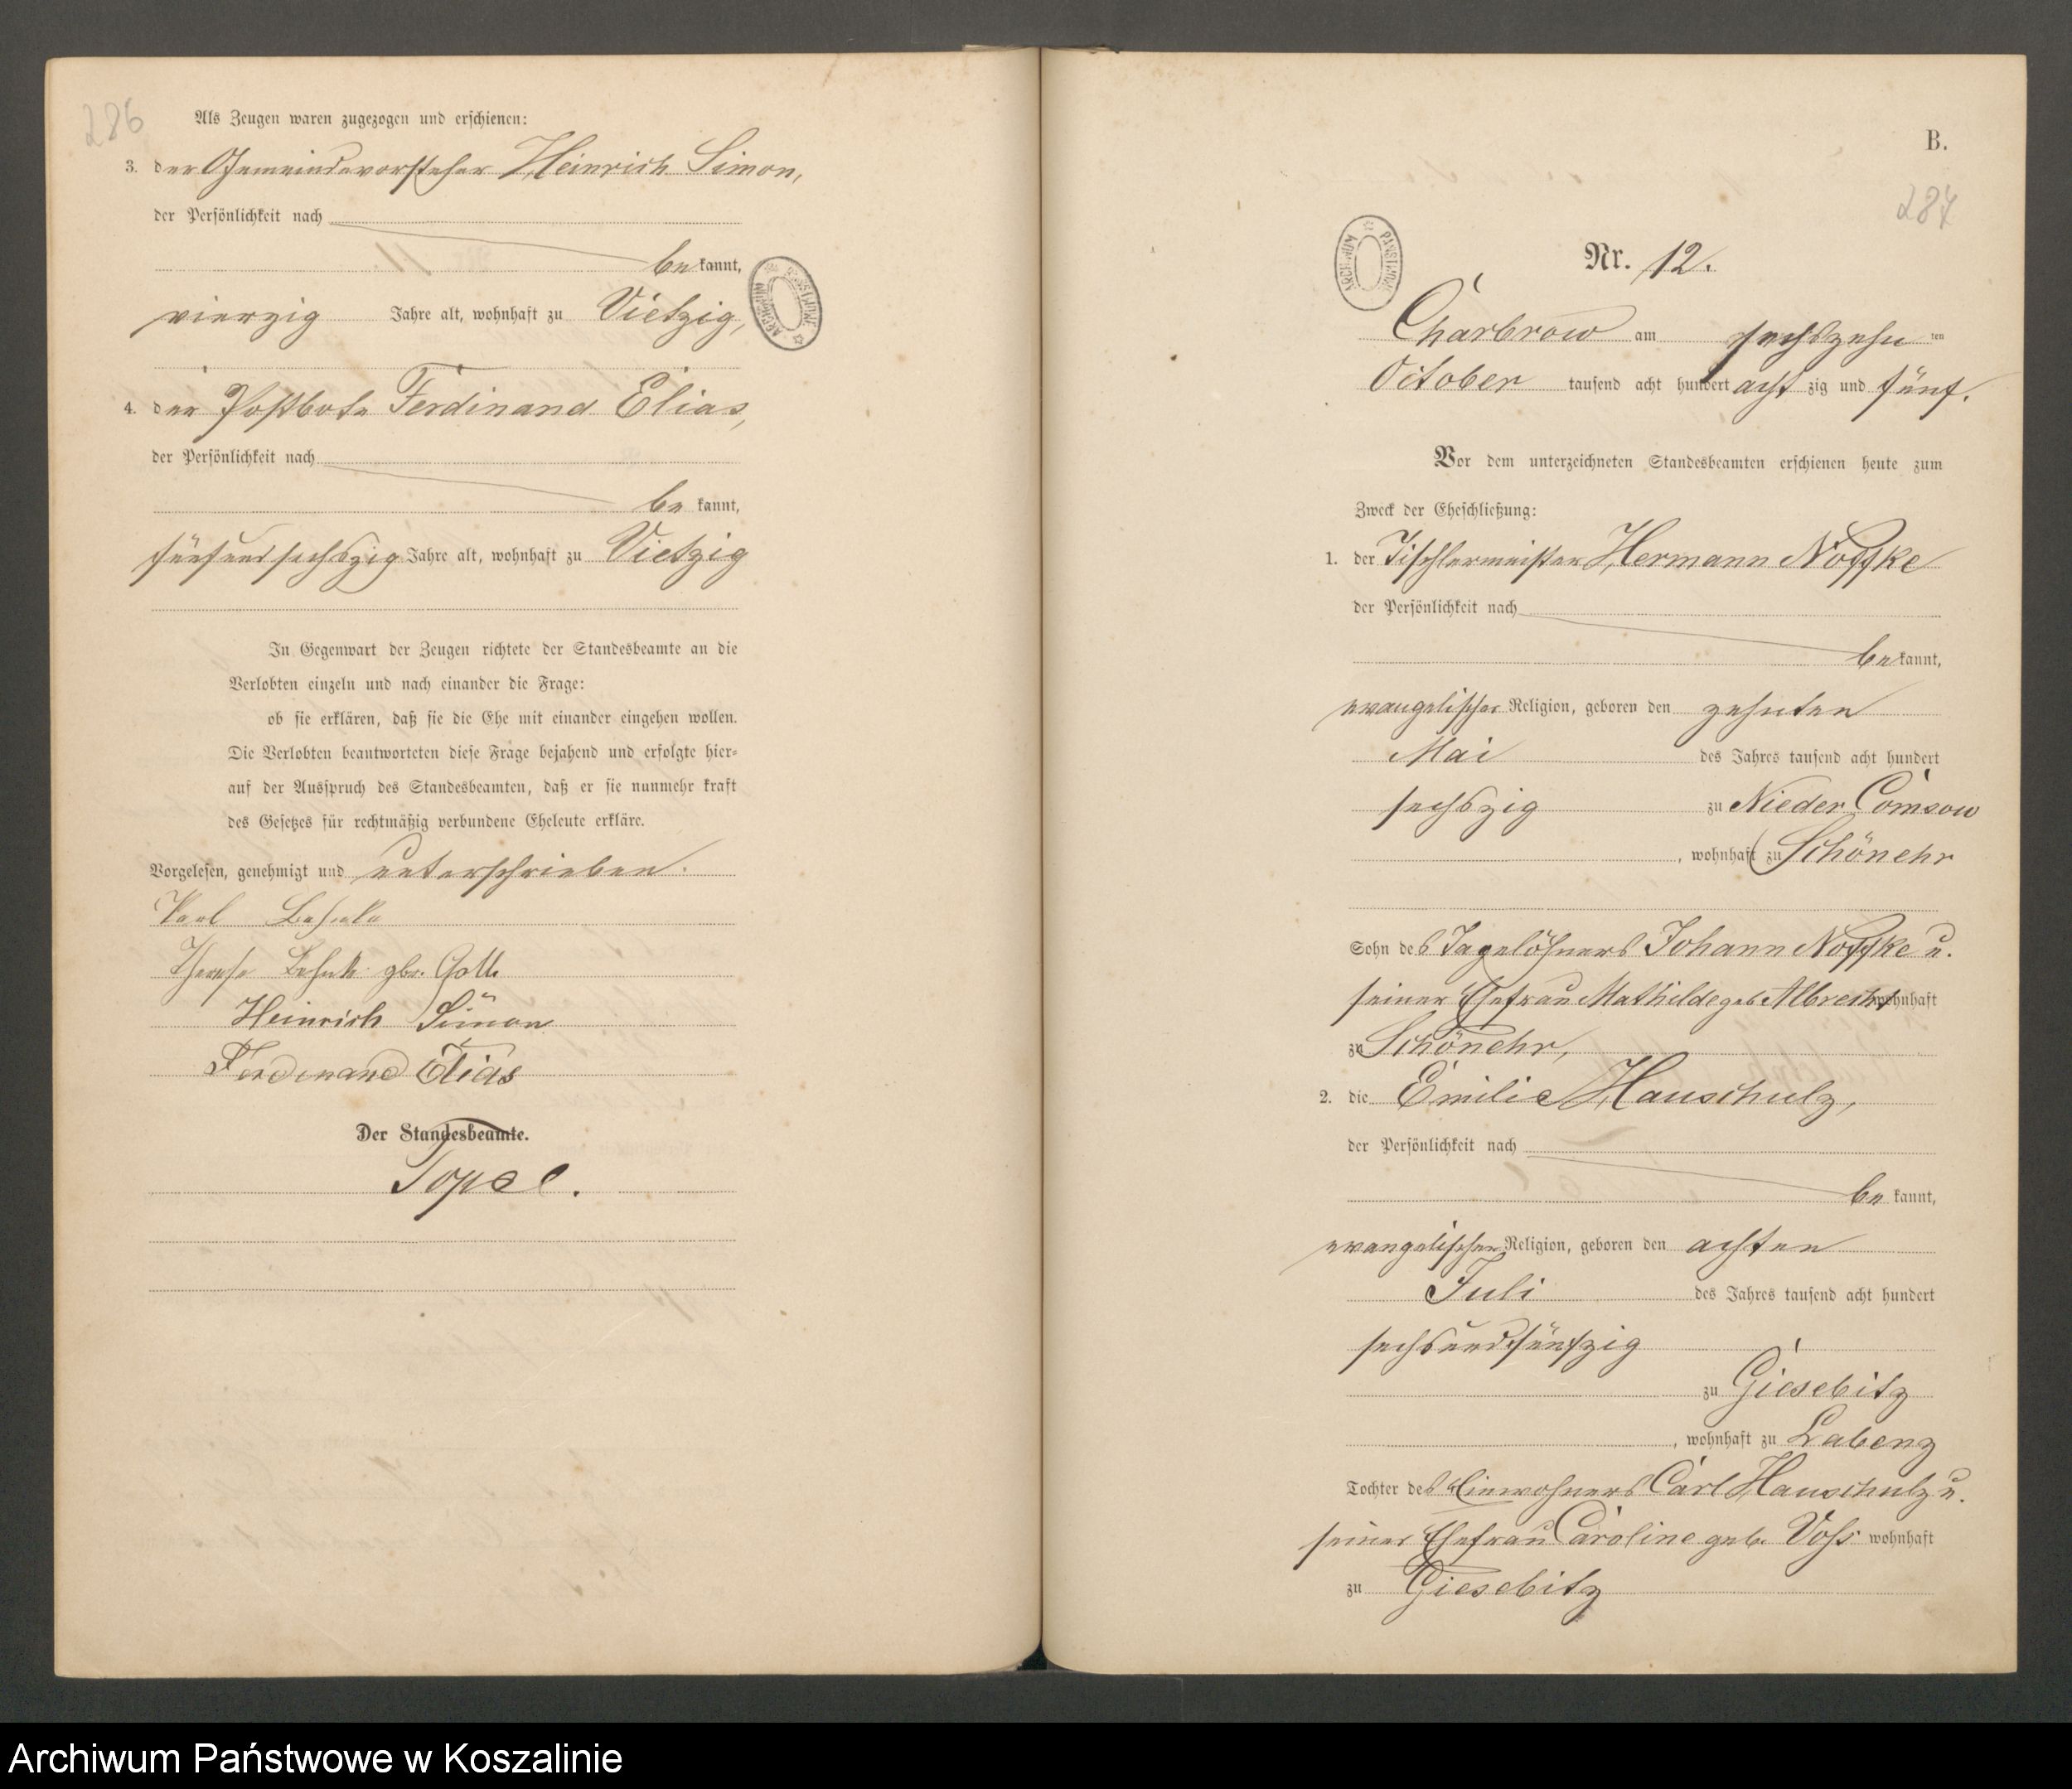 286
Als Zeugen waren zugezogen und erschienen:
3. der Gemeindevorsteher Heinrich Simon,
der Persönlichkeit nach
be kannt,
vierzig Jahre alt, wohnhaft zu Vietzig,
4. der Postbote Ferdinand Elias,
der Persönlichkeit nach
be kannt,
fünfundsechszig Jahre alt, wohnhaft zu Vietzig
In Gegenwart der Zeugen richtete der Standesbeamte an die
Verlobten einzeln und nach einander die Frage:
ob sie erklären, daß sie die Ehe mit einander eingehen wollen.
Die Verlobten beantworteten diese Frage bejahend und erfolgte hier=
auf der Ausspruch des Standesbeamten, daß er sie nunmehr kraft
des Gesetzes für rechtmäßig verbundene Eheleute erkläre.
Vorgelesen, genehmigt und unterschrieben.
Karl
Therese geb.
Heinrich Simon
Ferdinand Elias
Der Standesbeamte.
Topel.
ARCHIWUM PAŃSTWOWE
B.
287
ARCHIWUM PAŃSTWOWE
Nr. 12.
Charbrow am sechszehn ten
October tausend acht hundert acht zig und fünf.
Vor dem unterzeichneten Standesbeamten erschienen heute zum
Zweck der Eheschließung:
1. der Tischlermeister Hermann Noffke
der Persönlichkeit nach
be kannt,
evangelischer Religion, geboren den zehnten
Mai des Jahres tausend acht hundert
sechszig zu Nieder Comsow
, wohnhaft zu Schönehr
Sohn des Tagelöhners Johann Noffke u.
seiner Ehefrau Mathilde geb. Albrecht wohnhaft
zu Schönehr,
2. die Emilie Hauschulz,
der Persönlichkeit nach
be kannt,
evangelischer Religion, geboren den achten
Juli des Jahres tausend acht hundert
sechsundfünfzig
zu Giesebitz
, wohnhaft zu Labenz
Tochter des Einwohners Carl Hauschulz u.
seiner Ehefrau Caroline geb. Voss wohnhaft
zu Giesebitz
Archiwum Państwowe w Koszalinie